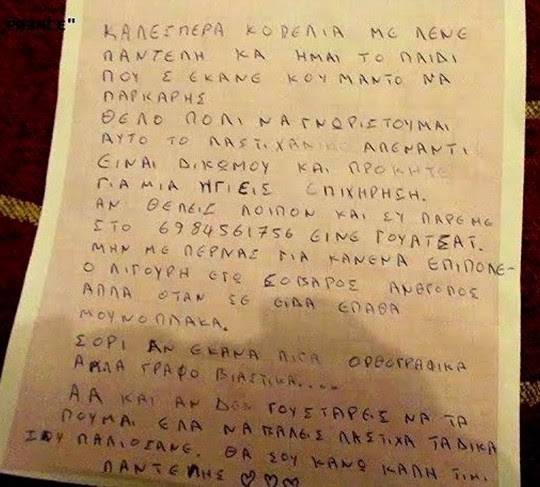 ΚΑΛΕΣΠΕΡΑ ΚΟΠΕΛΙΑ ΜΕ ΛΕΝΕ
ΠΑΝΤΕΛΗ ΚΑ ΗΜΑΙ ΤΟ ΠΑΙΔΙ
ΠΟΥ Σ ΕΚΑΝΕ ΚΟΥΜΑΝΤΟ ΝΑ
ΠΑΡΚΑΡΗΣ
ΘΕΛΟ ΠΟΛΙ ΝΑ ΓΝΩΡΙΣΤΟΥΜΑΙ
ΑΥΤΟ ΤΟ ΛΑΣΤΙΧΑΝΙΚΟ ΑΠΕΝΑΝΤΙ
ΕΙΝΑΙ ΔΙΚΩΜΟΥ ΚΑΙ ΠΡΟΚΗΤΕ
ΓΙΑ ΜΙΑ ΥΓΙΕΙΣ ΕΠΙΧΗΡΗΣΗ.
ΑΝ ΘΕΛΕΙΣ ΛΟΙΠΟΝ ΚΑΙ ΣΥ ΠΑΡΕ ΜΕ
ΣΤΟ 6984561756 ΕΙΝΕ ΓΟΥΑΤΣΑΤ.
ΜΗΝ ΜΕ ΠΕΡΝΑΣ ΓΙΑ ΚΑΝΕΝΑ ΕΠΙΠΟΛΕ-
Ο ΛΙΓΟΥΡΗ ΕΓΩ ΣΟΒΑΡΟΣ ΑΝΘΡΟΠΟΣ
ΑΠΛΑ ΟΤΑΝ ΣΕ ΕΙΔΑ ΕΠΑΘΑ
ΜΟΥΝΟΠΛΑΚΑ.
ΣΟΡΙ ΑΝ ΕΚΑΝΑ ΛΙΓΑ ΟΡΘΟΓΡΑΦΙΚΑ
ΑΛΛΑ ΓΡΑΦΟ ΒΙΑΣΤΙΚΑ....
ΑΑ ΚΑΙ ΑΝ ΔΕΝ ΓΟΥΣΤΑΡΕΙΣ ΝΑ ΤΑ
ΠΟΥΜΑΙ ΕΛΑ ΝΑ ΒΑΛΕΙΣ ΛΑΣΤΙΧΑ ΤΑ ΔΙΚΑ
ΣΟΥ ΠΑΛΙΟΣΑΝΕ. ΘΑ ΣΟΥ ΚΑΝΩ ΚΑΛΗ ΤΙΜ.
ΠΑΝΤΕΛΗΣ ♡♡♡